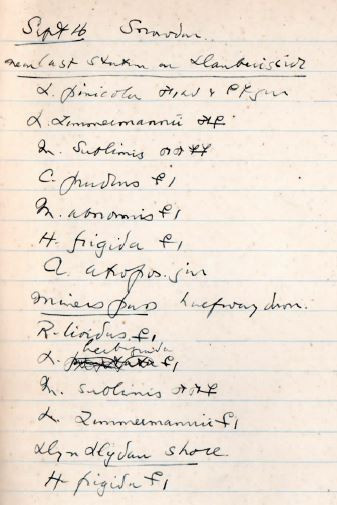 Sept 16 Snowdon.
near last Station on Llanberis side
L. pinicola ♂ ad & ♀♀
L. Zimmermannii ♂♀
M. sublimis ♂♂♀♀
C. prudens ♀1
M. abnormis ♀1
H. frigida ♀1
A. atropos. juv
Miners pass halfway down.
R. lividus ♀1
L. ♀1
M. sublimis ♂♂♀
L. Zimmermannii ♀1
Llyn Llydau shore.
H. frigida ♀1